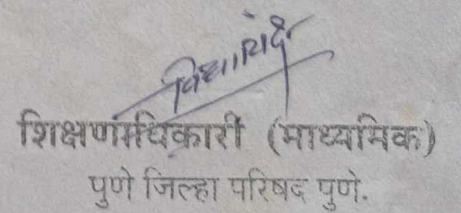 शिक्षणाधिकारी (माध्यमिक)
पुणे जिल्हा परिषद पुणे.